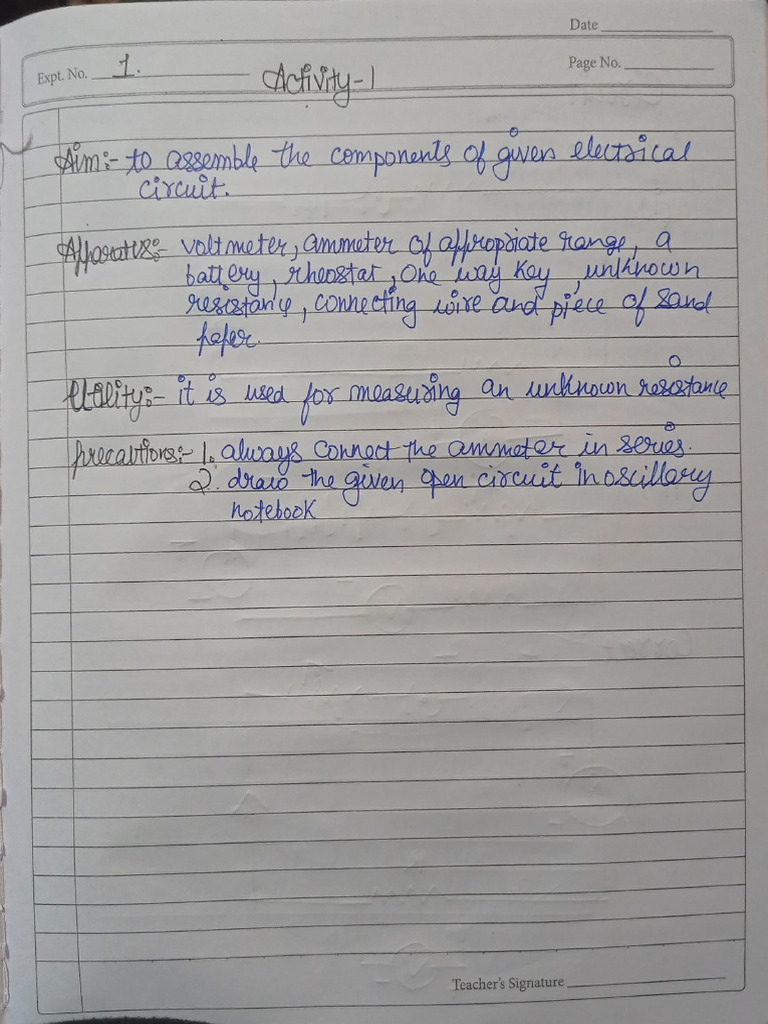 Date
Expt. No. 1.
Page No.
Activity-1
Aim:- to assemble the components of given electrical
circuit.
Apparatus:- voltmeter, ammeter of appropriate range, a
battery, rheostat, one way key, unknown
resistance, connecting wire and piece of sand
paper.
Utility:- it is used for measuring an unknown resistance
precautions:- 1. always connect the ammeter in series.
2. draw the given open circuit in oscillary
notebook
Teacher's Signature